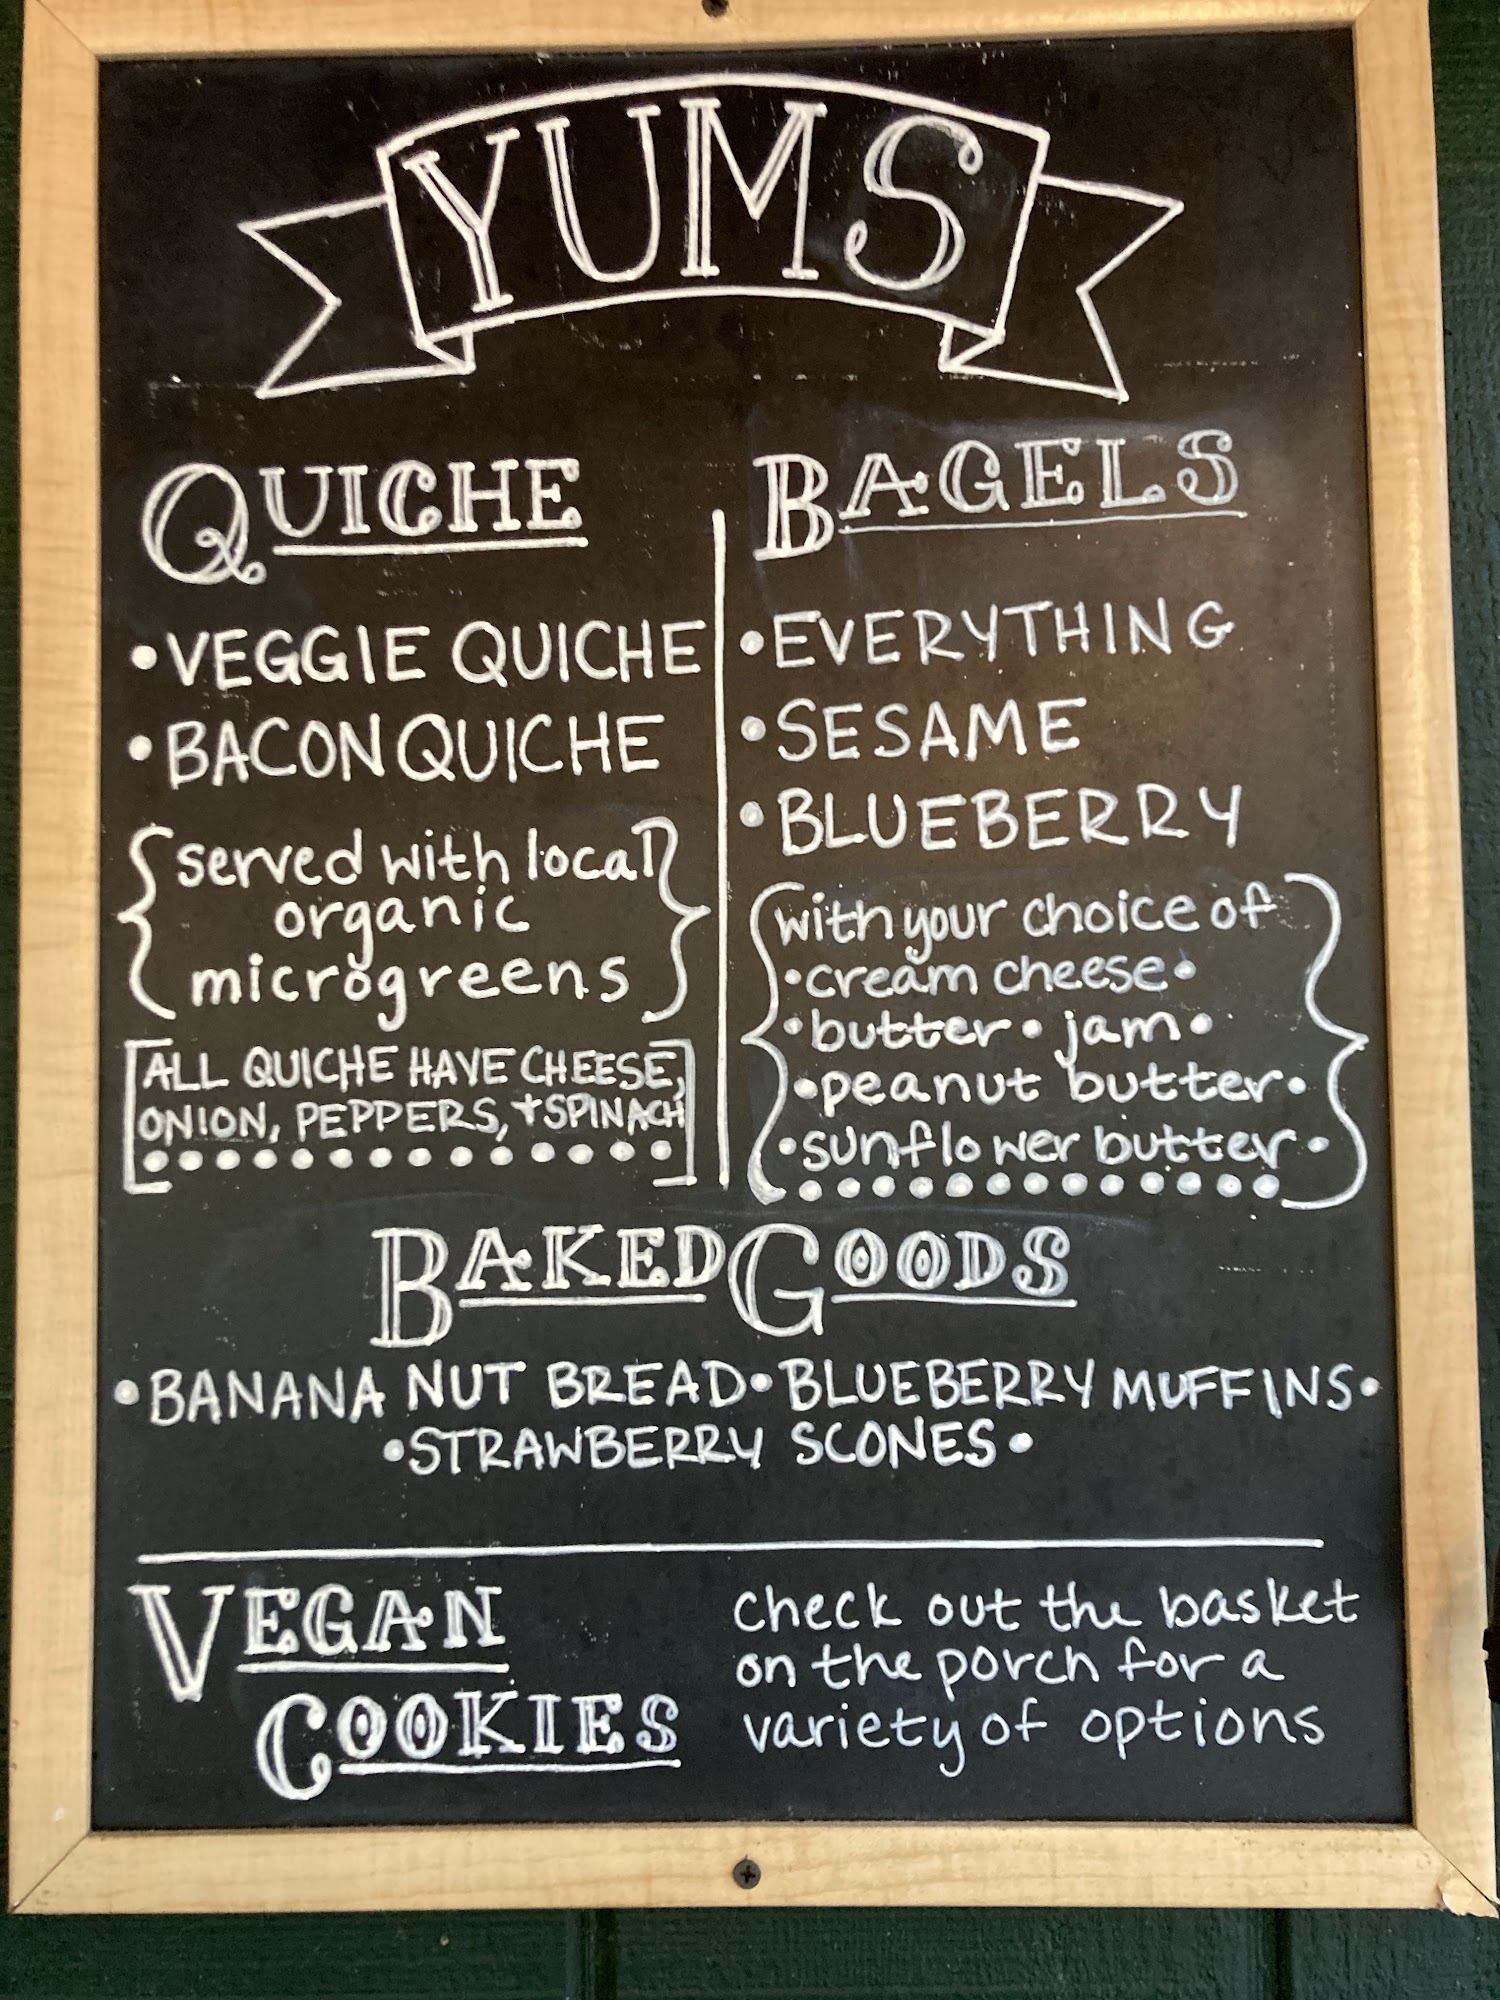 YUMS
QUICHE
• VEGGIE QUICHE
• BACON QUICHE
{served with local
organic
microgreens}
[ALL QUICHE HAVE CHEESE,
ONION, PEPPERS, + SPINACH]
BAGELS
• EVERYTHING
• SESAME
• BLUEBERRY
{with your choice of
• cream cheese •
• butter • jam •
• peanut butter •
• sunflower butter •}
BAKED GOODS
• BANANA NUT BREAD • BLUEBERRY MUFFINS •
• STRAWBERRY SCONES •
VEGAN
COOKIES
check out the basket
on the porch for a
variety of options